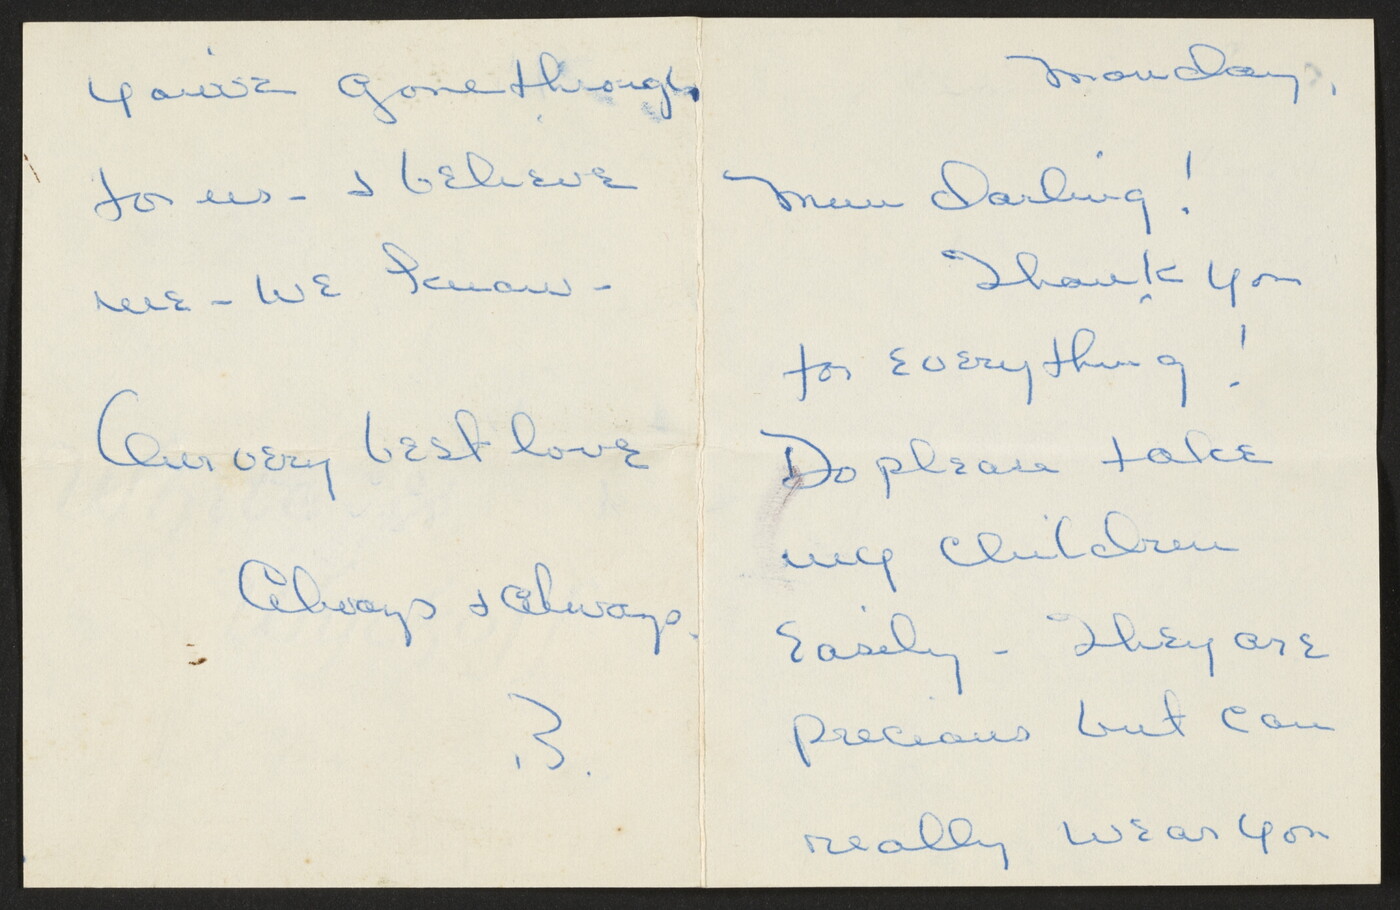 Monday,
Mum darling!
Thank you
for everything!
Do please take
my children
easily - They are
precious but can
really wear you
you've gone through
for us - & believe
me - we know -
Our very best love
Always & Always.
B.